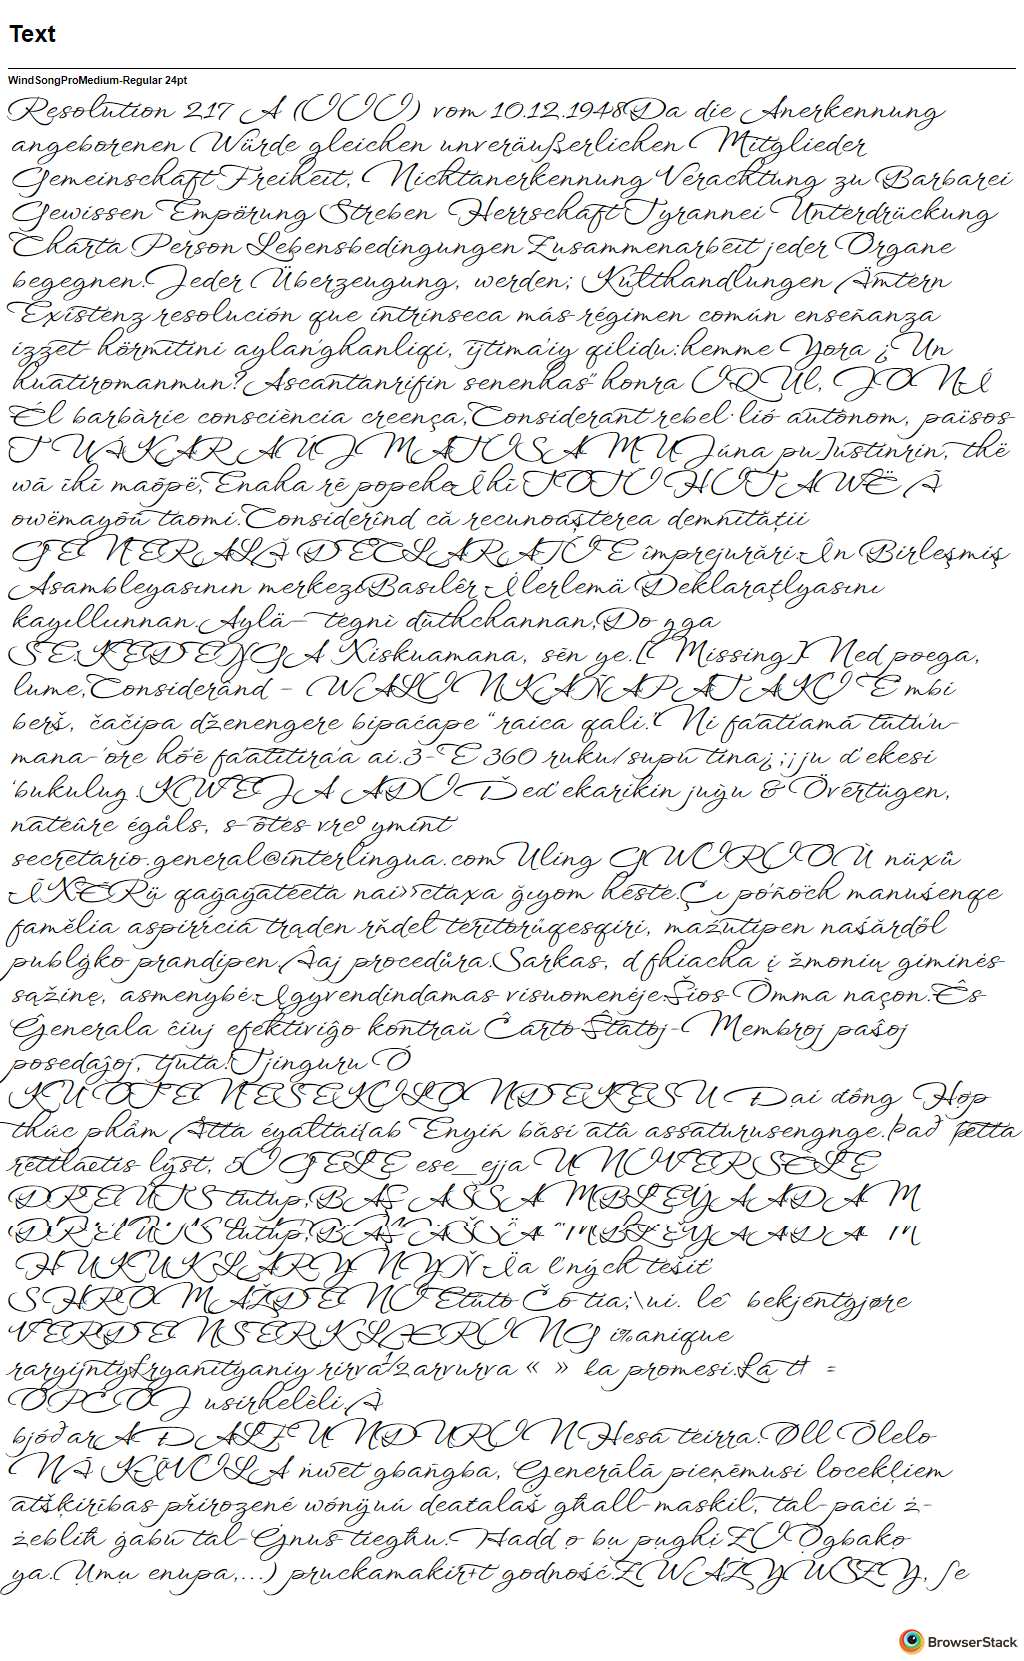 Text
WindSongProMedium-Regular 24pt
Resolution 217 A (III) vom 10.12.1948Da die Anerkennung
angeborenen Würde gleichen unveräußerlichen Mitglieder
Gemeinschaft Freiheit, Nichtanerkennung Verachtung zu Barbarei
Gewissen Empörung Streben Herrschaft Tyrannei Unterdrückung
Charta Person Lebensbedingungen Zusammenarbeit jeder Organe
begegnen.Jeder Überzeugung, werden; Kulthandlungen Ämtern
Existenz resolución que intrínseca más régimen común enseñanza
izzet-hörmitini aylan'ghanliqi, ijtima'iy qilidu:hemme Yora ¿Un
huatiromanmun?Ascantanrifin senenhas" honra IQUI, JONÍ
Él barbàrie consciència creença,Considerant rebel·lió autònom, països
TWÁKARAÚJMATISAMUJúna pu]ustinrin, thë
wã ĩhĩ maõpë,Enaha rẽ popehe Ĩhĩ TOTIHITAWË Ã
owëmayõũ taomi.Considerînd că recunoașterea demnității
GENERALĂ DECLARAȚIE împrejurări.În Birleşmiş
Asambleyasının merkezi Basılêr İlerlemä Deklaraţlyasını
kayıllunnan.Aylä— tegnì dùthchannan,Do gga
SEKEDENGA Xiskuamana, sēn ye.[Missing] Ned poega,
lume,Considerând – WALINKAÑAPATAKI E mbi
berš, čačipa dženengere bipaćape “raica qali.” Ni fa'ati'amā tūtū'u-
mana-'ore hō'ē fa'atitira'a ai.3-E 360 ruku/supu tina¿;¡ju ɗ'ekesi
'bukulug.KWEJA ADI Ďeď ekarikin juġu & Övertügen,
nateûre égåls, s-ôtes vre° ymint
secretario.general@interlingua.com Uling GWIRIOÙ nüxũ
ĨNËRü qaỹaỹateeta nai››ctaxa ğıyom heste.Çı po'ño'ch manuśenqe
famělia aspirrícia trąden rňdel teritorűqesqiri, maźutipen naśărdől
publġko prandipen.Âaj procedůra.Sarkas, d fhiacha į žmonių giminės
sąžinę, asmenybė.Įgyvendindamas visuomenėje.Šios Òmma naçon.Ês
Ĝenerala ĉiuj efektiviĝo kontraŭ Ĉarto Ŝtatoj-Membroj paŝoj
posedaĵoj, tjuta!Tjinguru Ó
KUOTENESEKILONDEKESU Đại đồng Hợp
thức phẩm Åtta éyaltai{ab Enyiń băsí atâ assaturusengnge.Það þetta
réttlætis lýst, 5ÖGELE ese_ejja UNIVERSELE
DREÛTS tutup,BAŞ ASSAMBLEÝA ADAM
HUKUKLARYNYŇ Äa ľných tešiť
SHROMÁŽDENIE tūto Čo tia;\ui. lê bekjentgjøre
VERDENSERKLÆRING i%anique
raryijnty£ryanityaniy rirva½arvurva « » ła promesi.Ła tł =
OPĆOJ usirhelèli.À
bjóðar ADALFUNDURIN Hesa teirra.Øll Ōlelo
NĀ KĀNILA ṅwet gbañgba, Ģenerālā pieņēmusi locekļiem
atšķirības přirozené wónÿuú ɖeaɖalaš għall-maskil, tal-paċi ż-
żebliħ ġabu tal-Ġnus tiegħu.Hadd ọ bụ pụghị ZI Ọgbakọ
ya.(Ụmụ enupa,...) pruckamakirɨt godność.ZWAŻYWSZY, ſe
BrowserStack